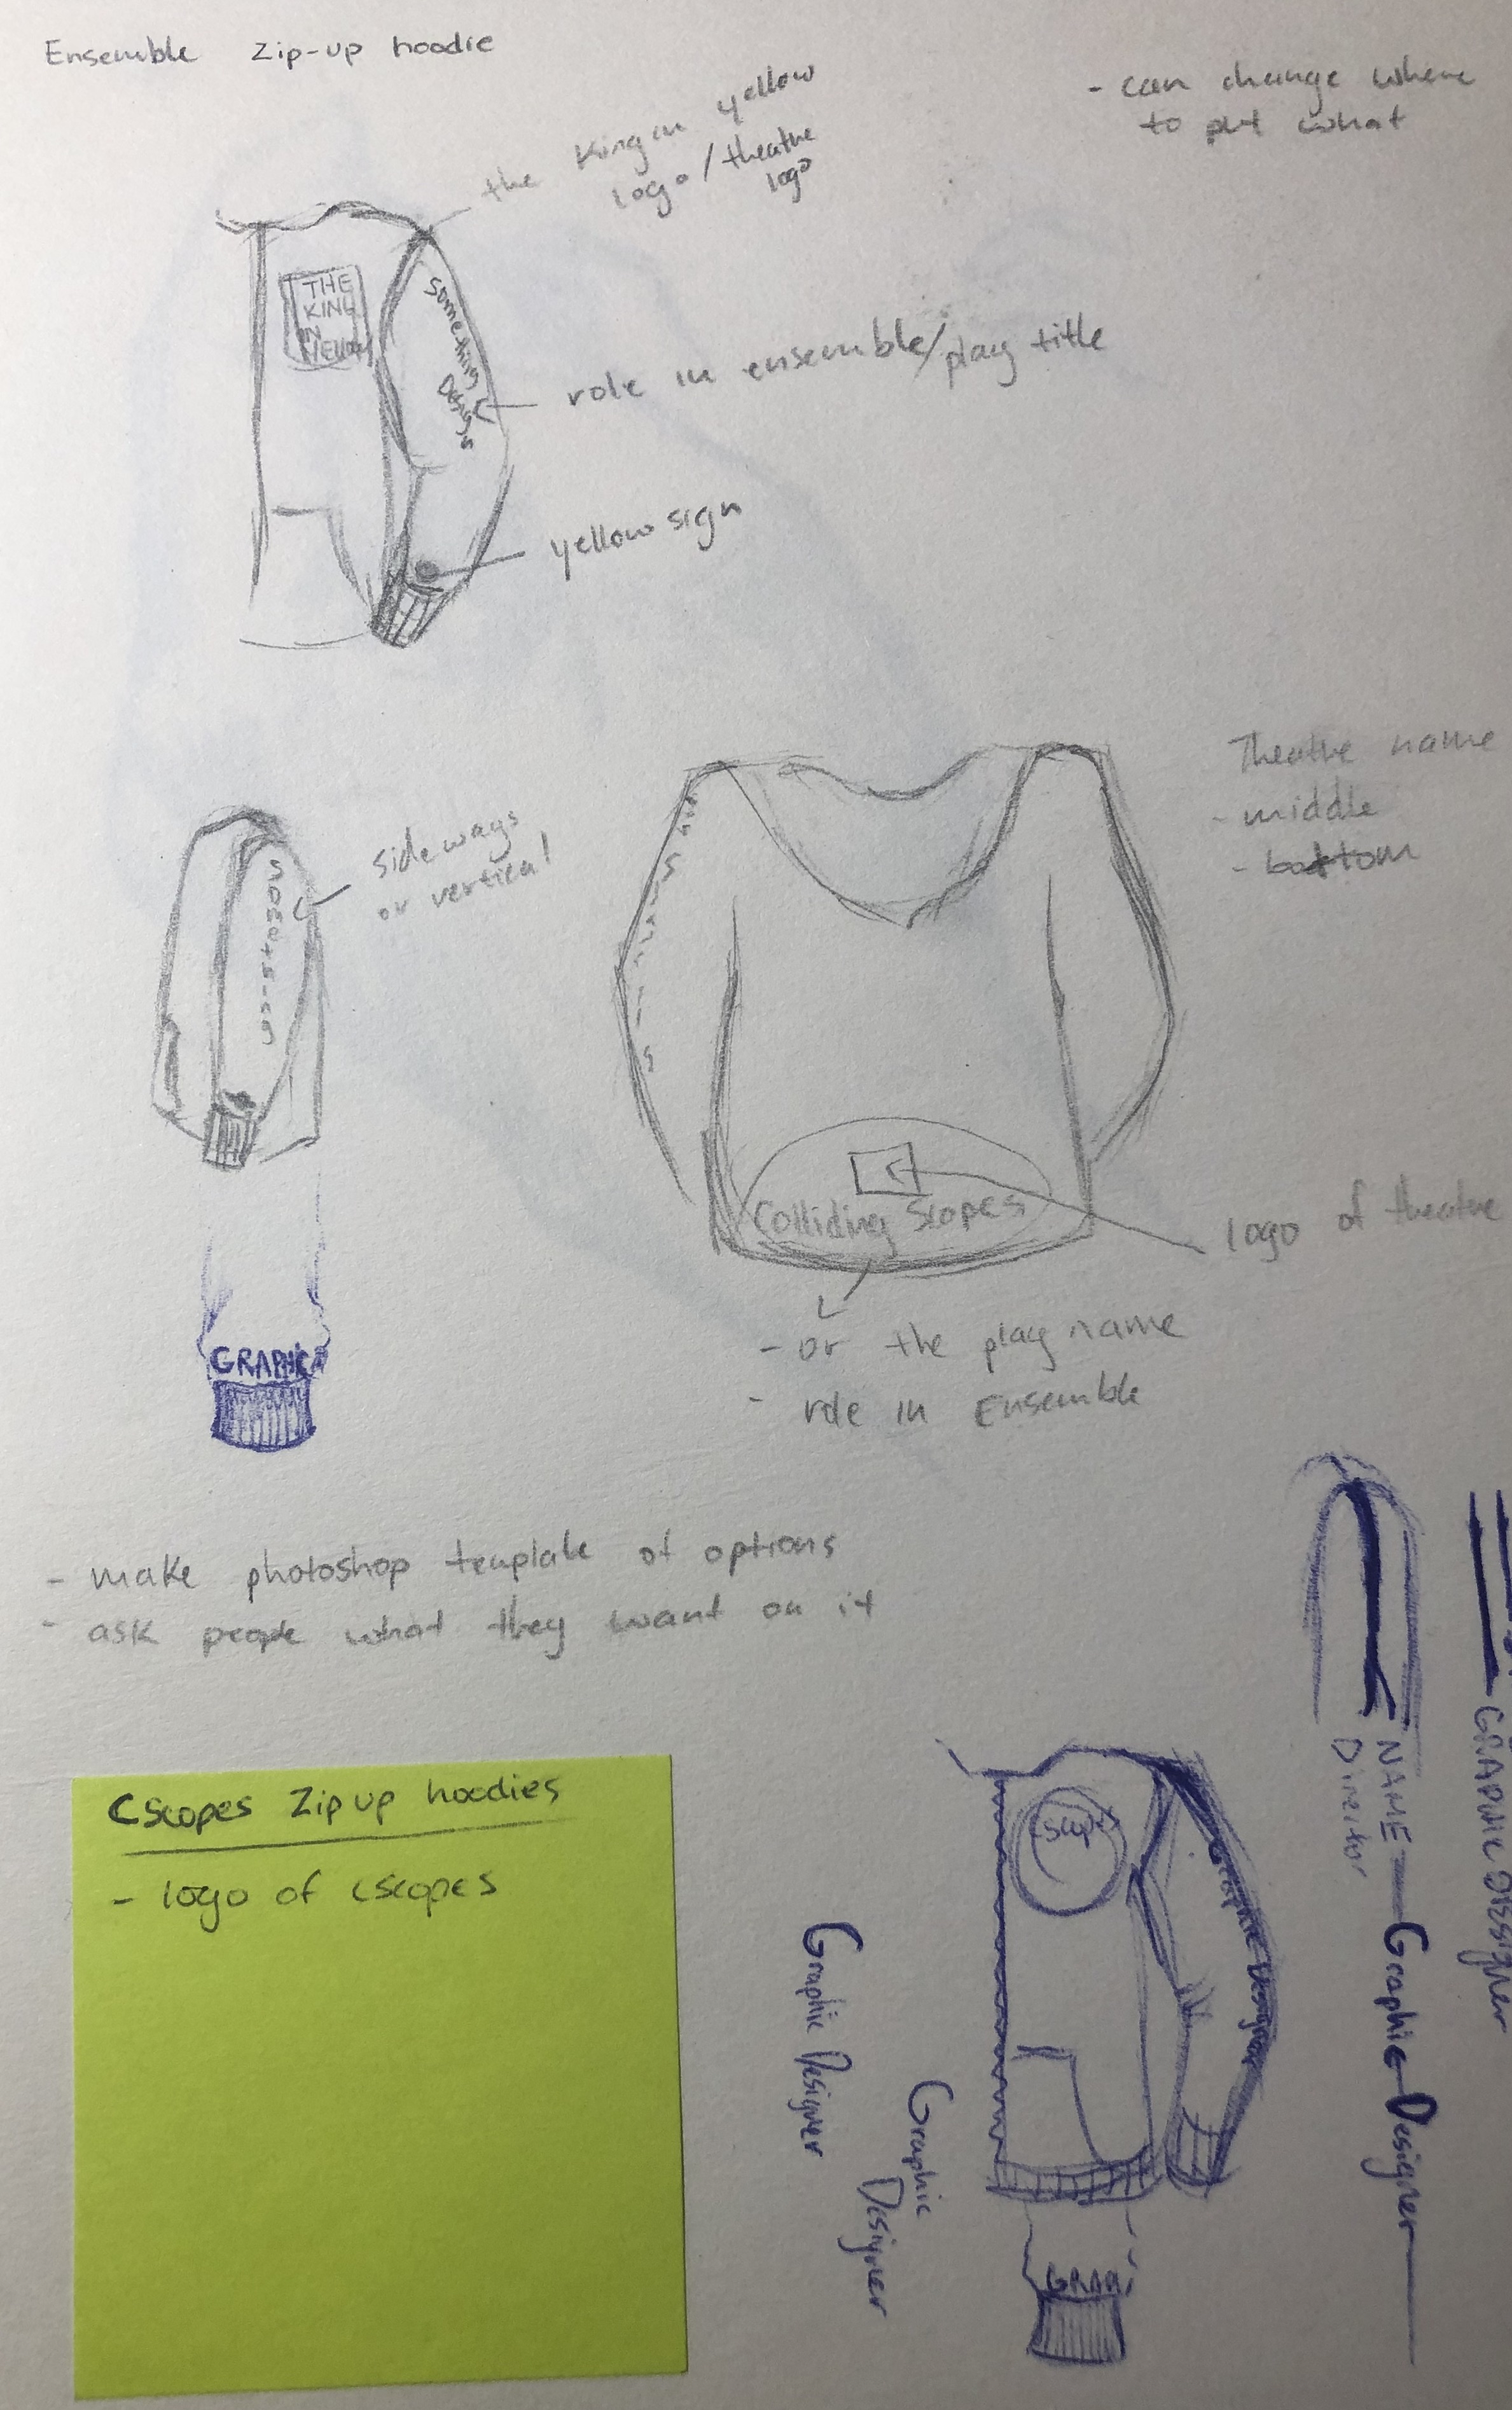 Ensemble Zip-up hoodie
- can change where
to put what
the King in yellow
logo / theatre
logo
THE
KING
IN
YELLOW
Something
Design
role in ensemble/play title
yellow sign
sideways
or vertical
something
Theatre name
- middle
- bottom
Colliding Scopes
logo of theatre
- or the play name
- role in Ensemble
GRAPHIC
- make photoshop template of options
- ask people what they want on it
Cscopes Zip up hoodies
- logo of cscopes
Cscopes
Graphic Designer
Graphic Designer
Graphic
Designer
GRAP
NAME — Graphic Designer
Director
GRAPHIC DESSIGNER